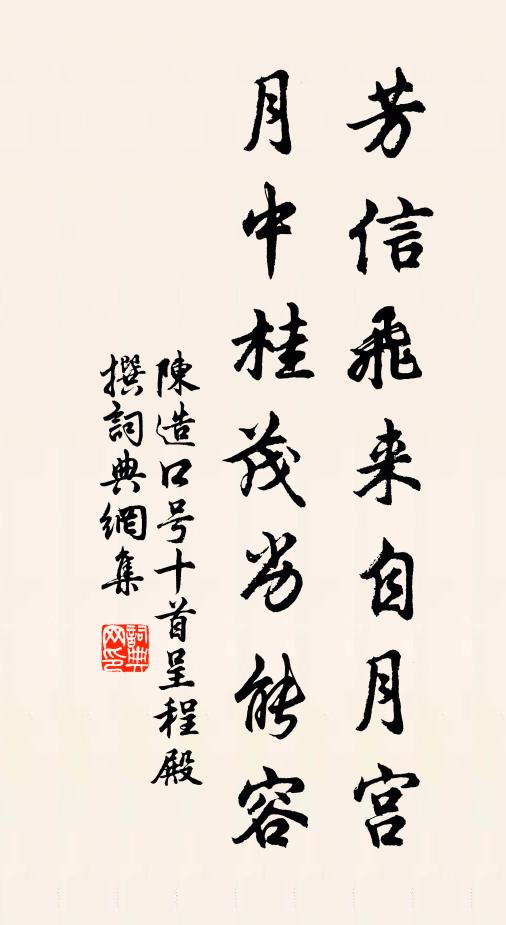 芳信飛来自月宫
月中桂茂劣能容
陳造口号十首呈程殿
撰詞典網集
詞典網印